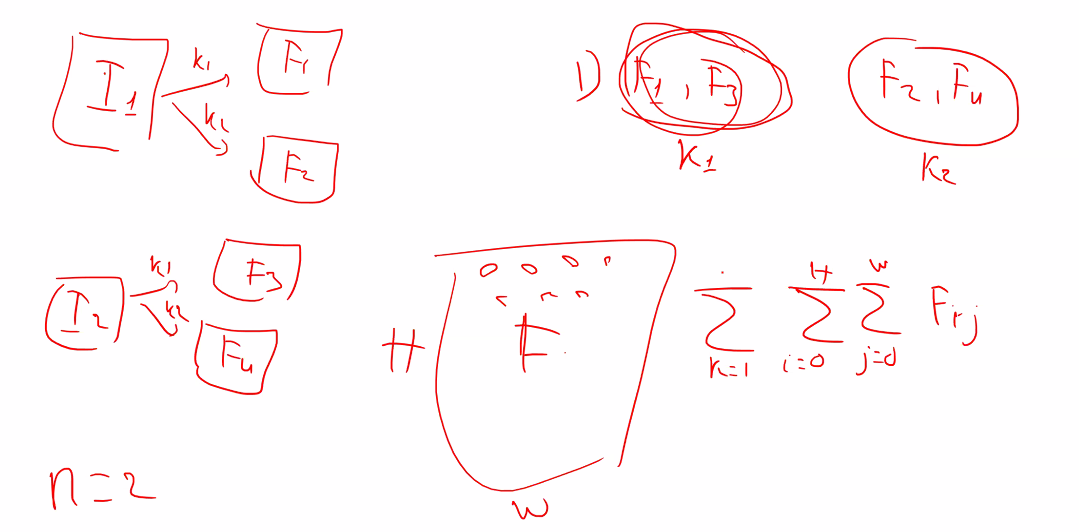 I1 k1 F1
k2 F2
1) F1, F3 F2, F4
K1 K2
I2 k1 F3
k2 F4
H F W
∑ k=1 ∑ i=0 H ∑ j=0 W Fij
n=2